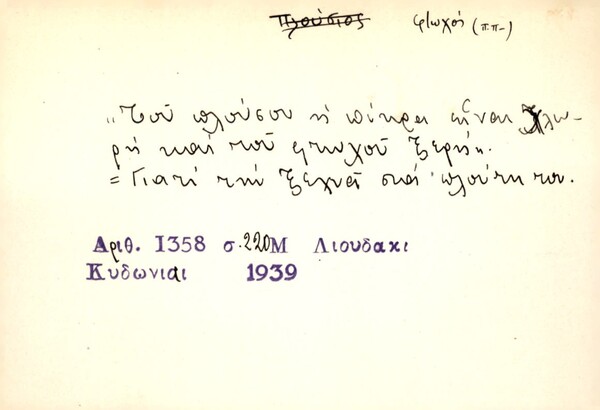 Πλούσιος φτωχός (π.π.)
„Τοῦ πλούσου ἡ πίκρα εἶναι χλω-
ρή καί τοῦ φτωχοῦ ξερή".
= Γιατί τήν ξεχνᾶ στά πλούτη του.
Αριθ. 1358 σ. 220 Μ Λιουδακι
Κυδωνιαι 1939